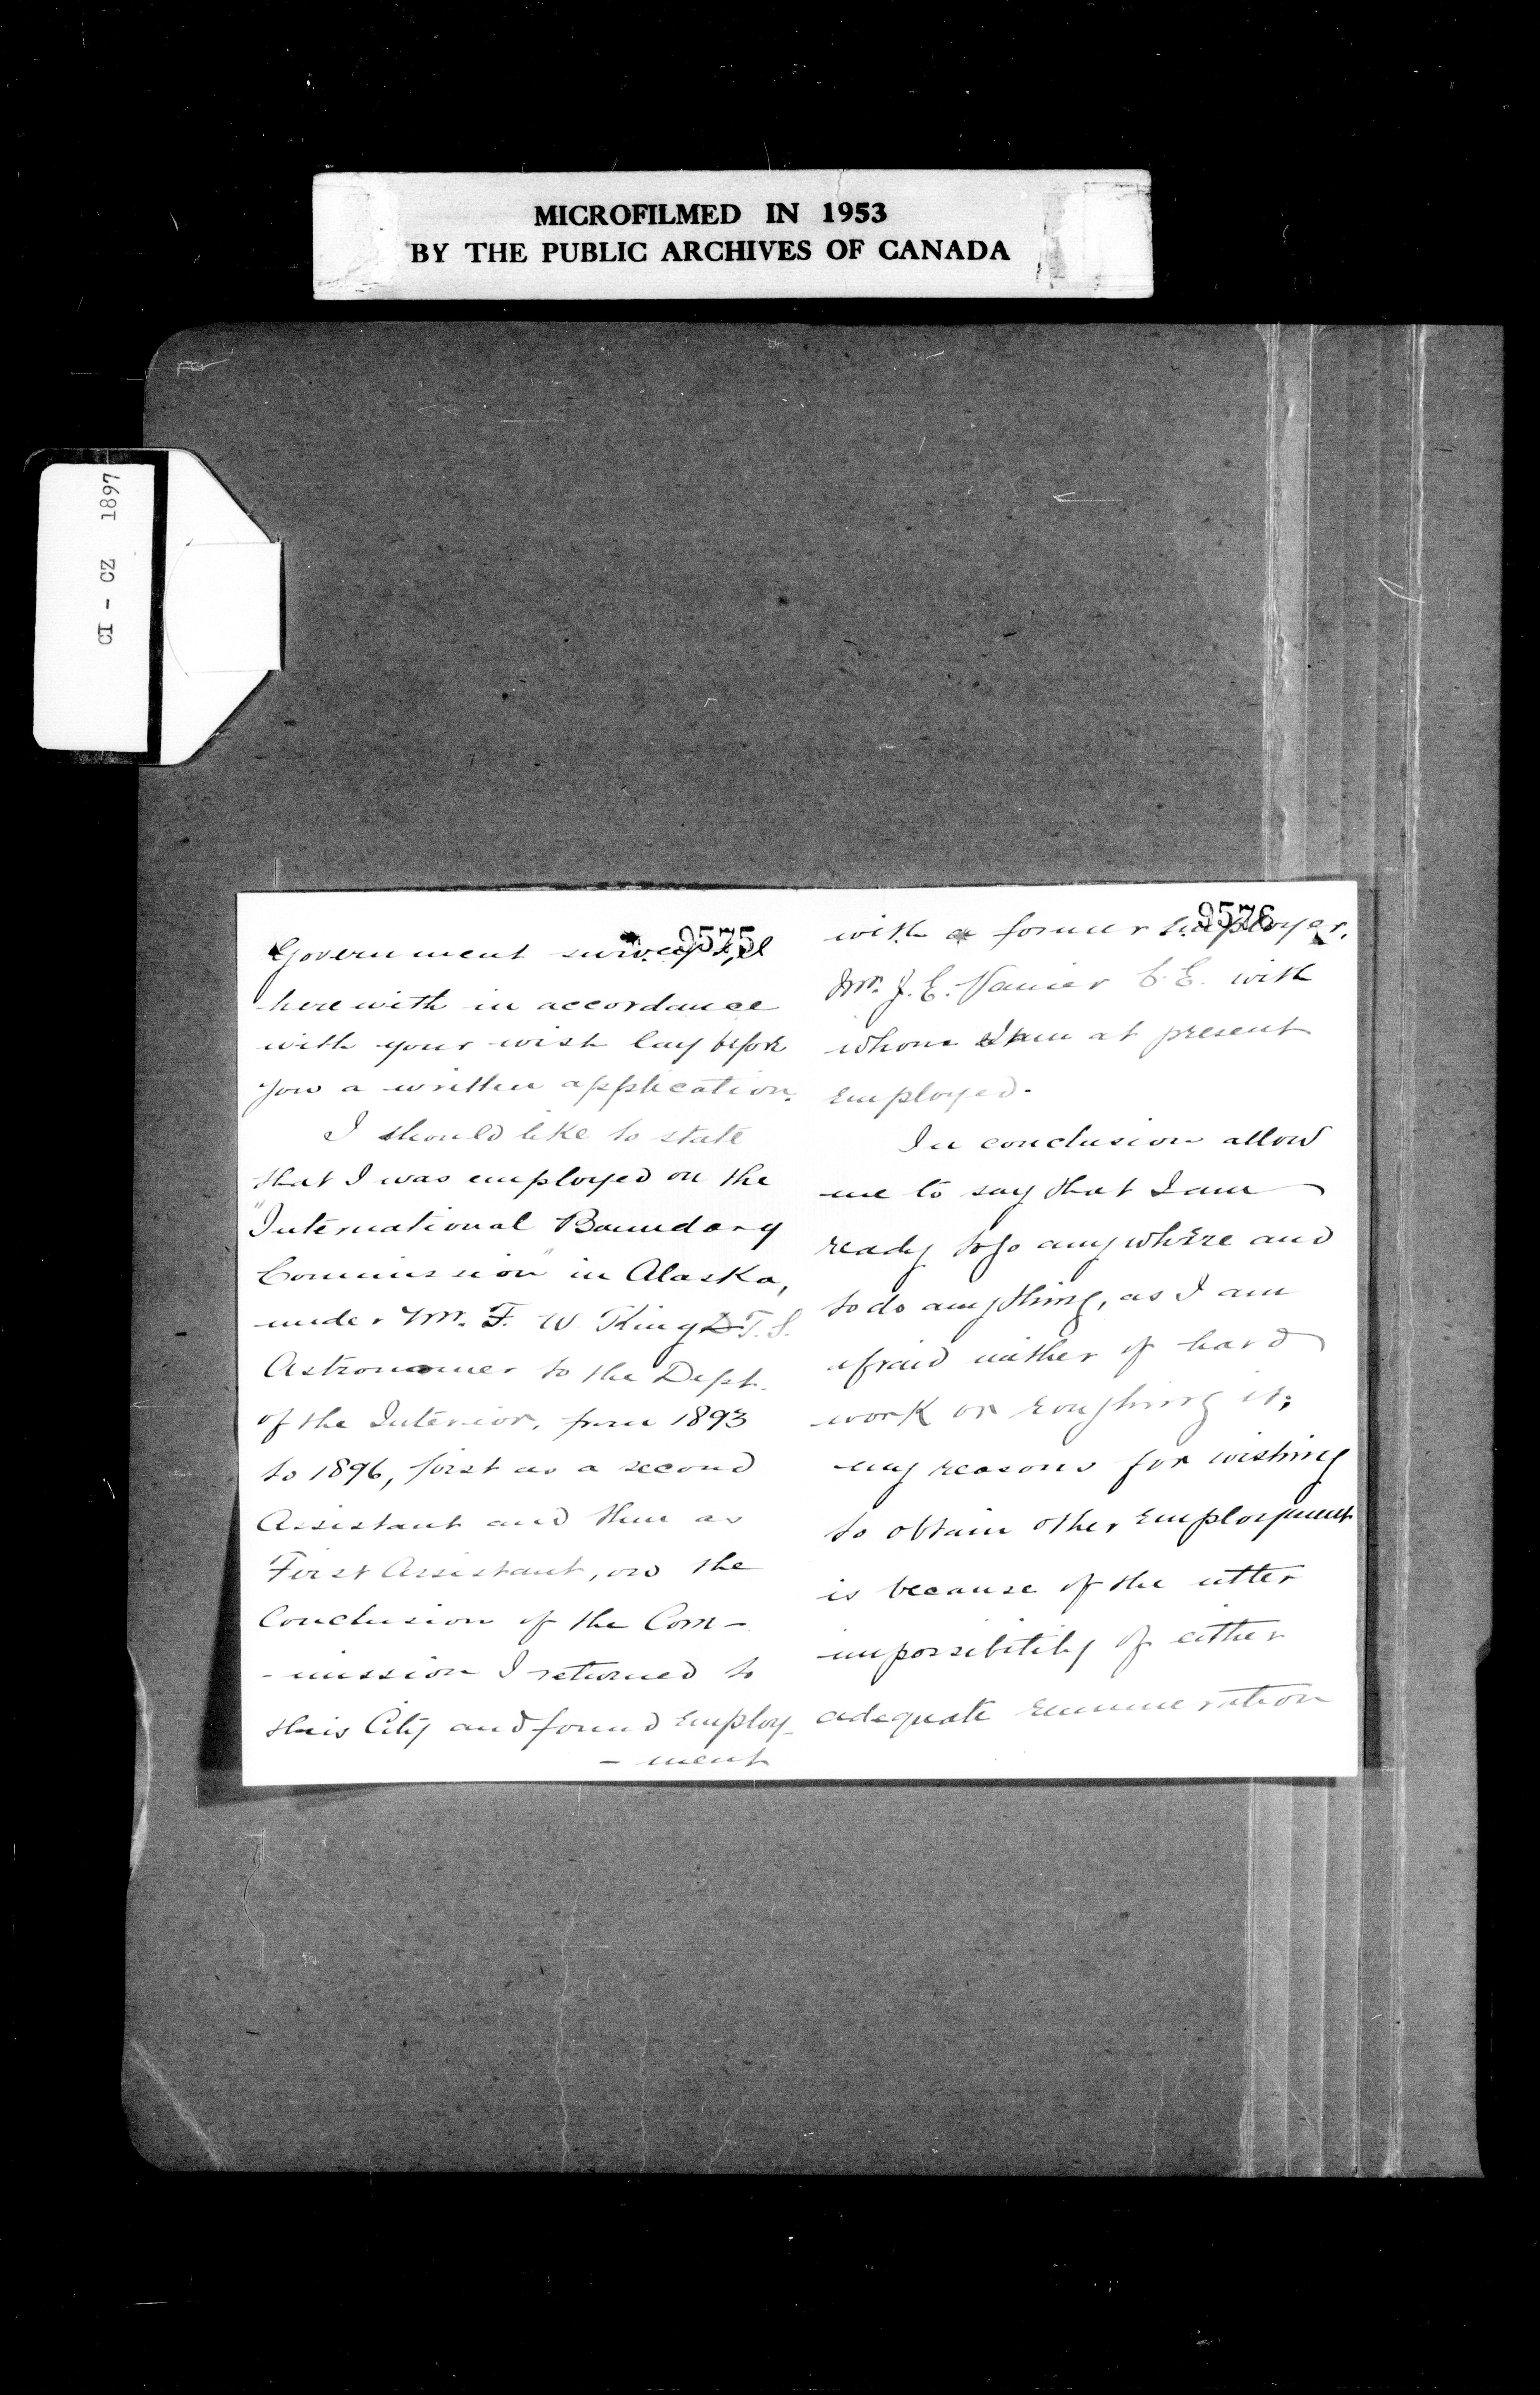 MICROFILMED IN 1953
BY THE PUBLIC ARCHIVES OF CANADA
CI - CZ 1897
9575
Government surveys, I
herewith in accordance
with your wish lay before
you a written application.
I should like to state
that I was employed on the
"International Boundary
Commission" in Alaska,
under Mr. F. W. King D.T.S.
Astronomer to the Dept.
of the Interior, from 1893
to 1896, first as a second
Assistant and then as
First Assistant, on the
Conclusion of the Com-
-mission I returned to
this City and found employ-
- ment
9576
with a former employer,
Mr. J. E. Vanier C.E. with
whom I am at present
employed.
In conclusion allow
me to say that I am
ready to go anywhere and
to do anything, as I am
afraid neither of hard
work or roughing it;
my reasons for wishing
to obtain other employment
is because of the utter
impossibility of either
adequate remuneration